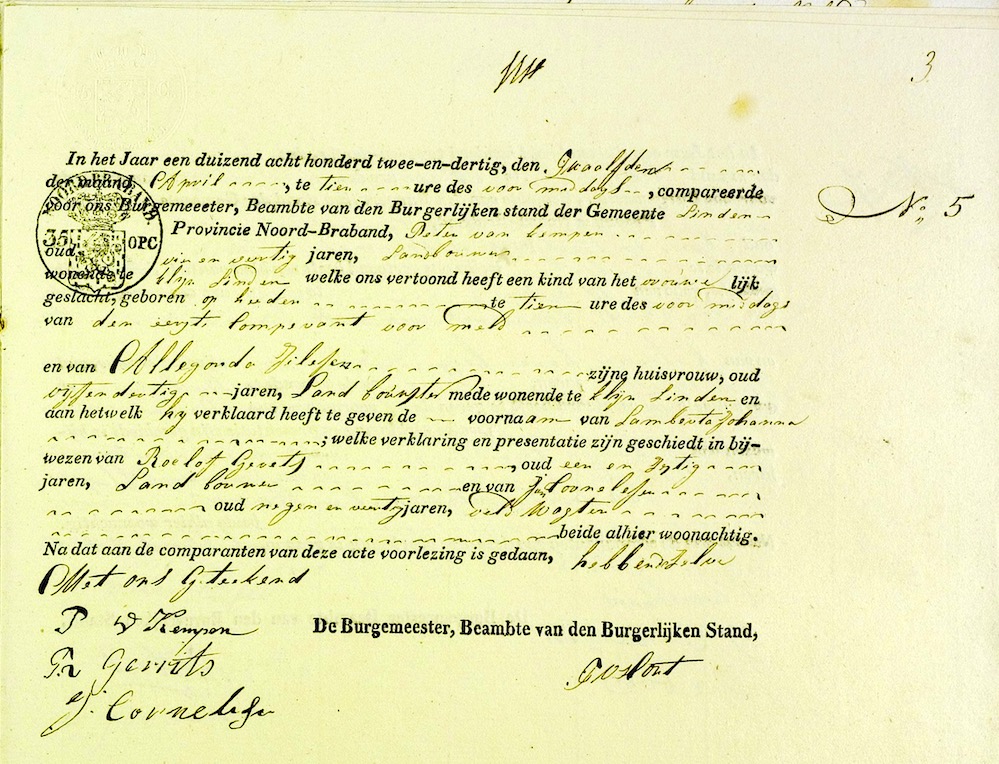 3
In het Jaar een duizend acht honderd twee-en-dertig, den Twaalfden
der maand April, te tien ure des voor middags, compareerde
voor ons Burgemeeter, Beambte van den Burgerlijken stand der Gemeente Linden
N: 5
Provincie Noord-Braband, Peter van Kempen
35 OPC
oud vier en veertig jaren, Landbouwer
wonende te klijn Linden welke ons vertoond heeft een kind van het vrouwe lijk
geslacht, geboren op heeden te tien ure des voor middags
van den eerste Comperant voor meld
en van Allegonda Jilesen zijne huisvrouw, oud
vijf en dertig jaren, Land bouwster mede wonende te klijn Linden en
aan hetwelk hy verklaard heeft te geven de voornaam van Lamberta Johanna
; welke verklaring en presentatie zijn geschiedt in bij-
wezen van Roelof Gerets, oud een en
jaren, Land bouwer en van Jan Cornelesen
oud negen en veertig jaren, veld Wagter
beide alhier woonachtig.
Na dat aan de comparanten van deze acte voorlezing is gedaan, hebben dezelve
Met ons Geteekend
P V Kempen
De Burgemeester, Beambte van den Burgerlijken Stand,
R Gerrits
J. Cornelesse